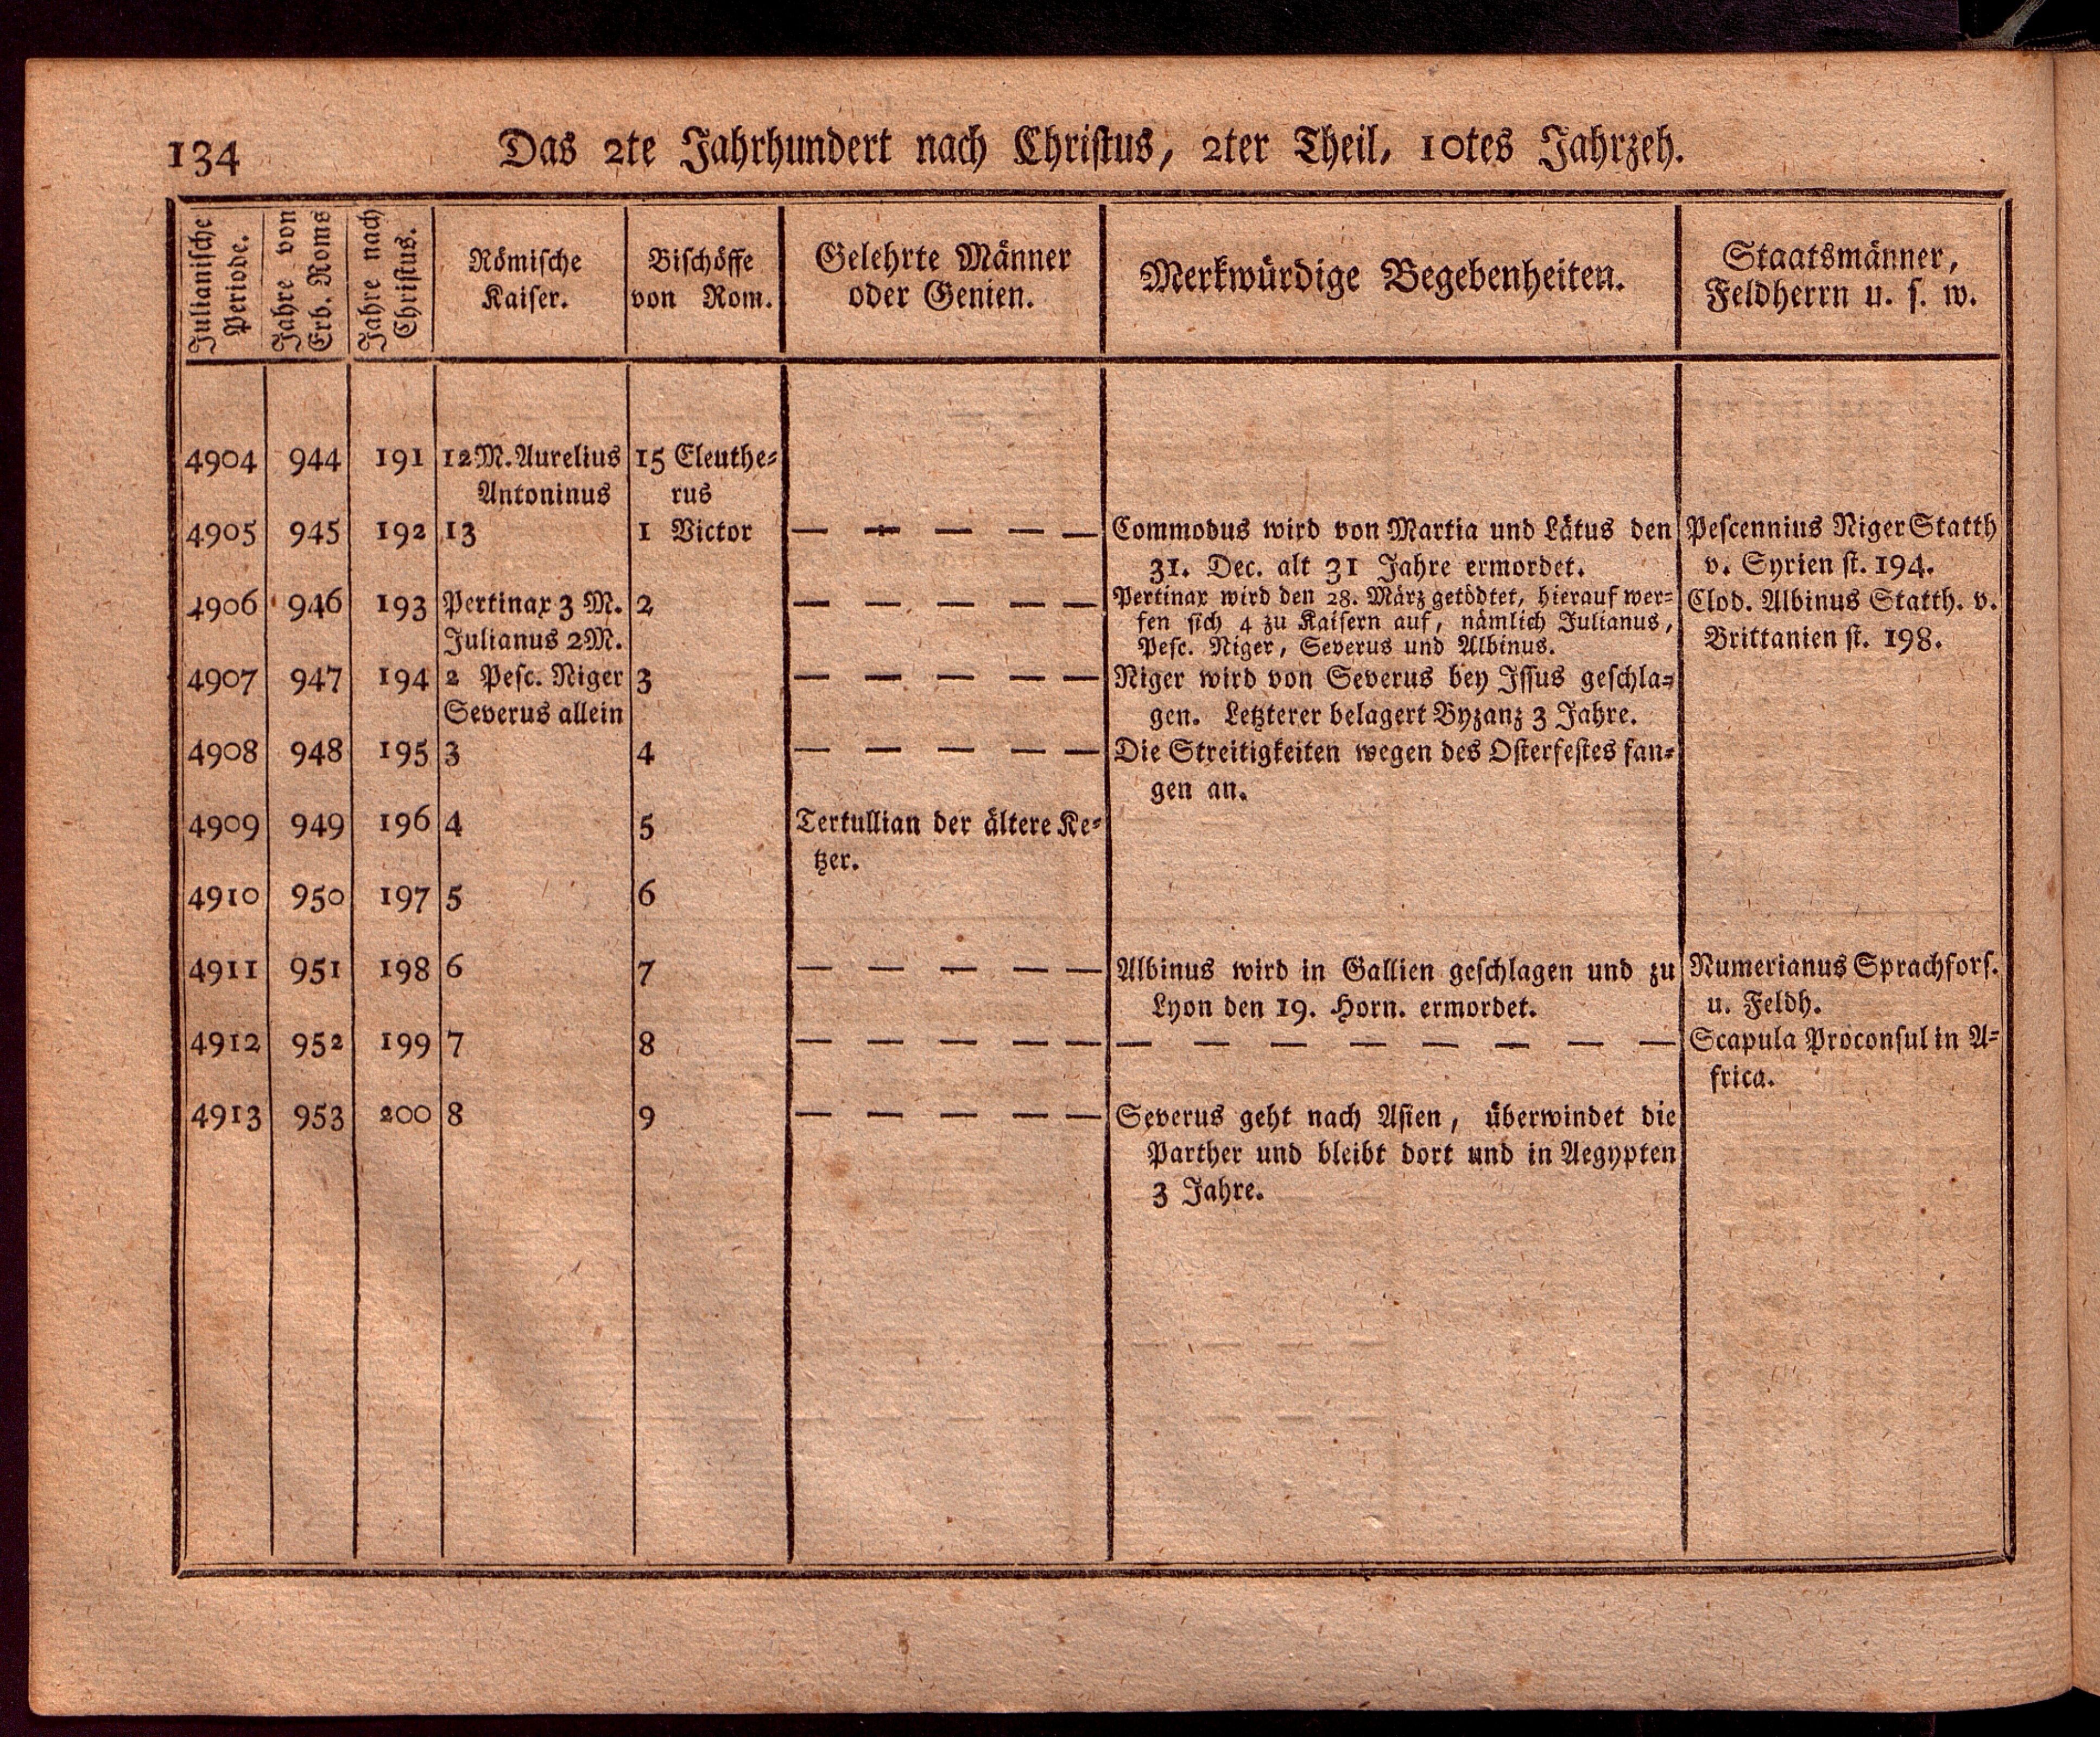 134 Das 2te Jahrhundert nach Christus, 2ter Theil, 10tes Jahrzeh.
Julianische
Periode.
Jahre von
Erb. Roms
Jahre nach
Christus.
Römische
Kaiser.
Bischöffe
von Rom.
Gelehrte Männer
oder Genien.
Merkwürdige Begebenheiten.
Staatsmänner,
Feldherrn u. s. w.
4904 944 191 12 M. Aurelius 15 Eleuthe-
Antoninus rus
4905 945 192 13 1 Victor — — — — — Commodus wird von Martia und Lätus den Pescennius Niger Statth
31. Dec. alt 31 Jahre ermordet. v. Syrien st. 194.
4906 946 193 Pertinax 3 M. 2 — — — — — Pertinax wird den 28. März getödtet, hierauf wer- Clod. Albinus Statth. v.
fen sich 4 zu Kaisern auf, nämlich Julianus,
Julianus 2 M. Pesc. Niger, Severus und Albinus. Brittanien st. 198.
4907 947 194 2 Pesc. Niger 3 — — — — — Niger wird von Severus bey Issus geschla-
Severus allein gen. Letzterer belagert Byzanz 3 Jahre.
4908 948 195 3 4 — — — — — Die Streitigkeiten wegen des Osterfestes fan-
gen an.
4909 949 196 4 5 Tertullian der ältere Ke-
tzer.
4910 950 197 5 6
4911 951 198 6 7 — — — — — Albinus wird in Gallien geschlagen und zu Numerianus Sprachfors.
Lyon den 19. Horn. ermordet. u. Feldh.
4912 952 199 7 8 — — — — — — — — — — — — — Scapula Proconsul in A-
frica.
4913 953 200 8 9 — — — — — Severus geht nach Asien, überwindet die
Parther und bleibt dort und in Aegypten
3 Jahre.